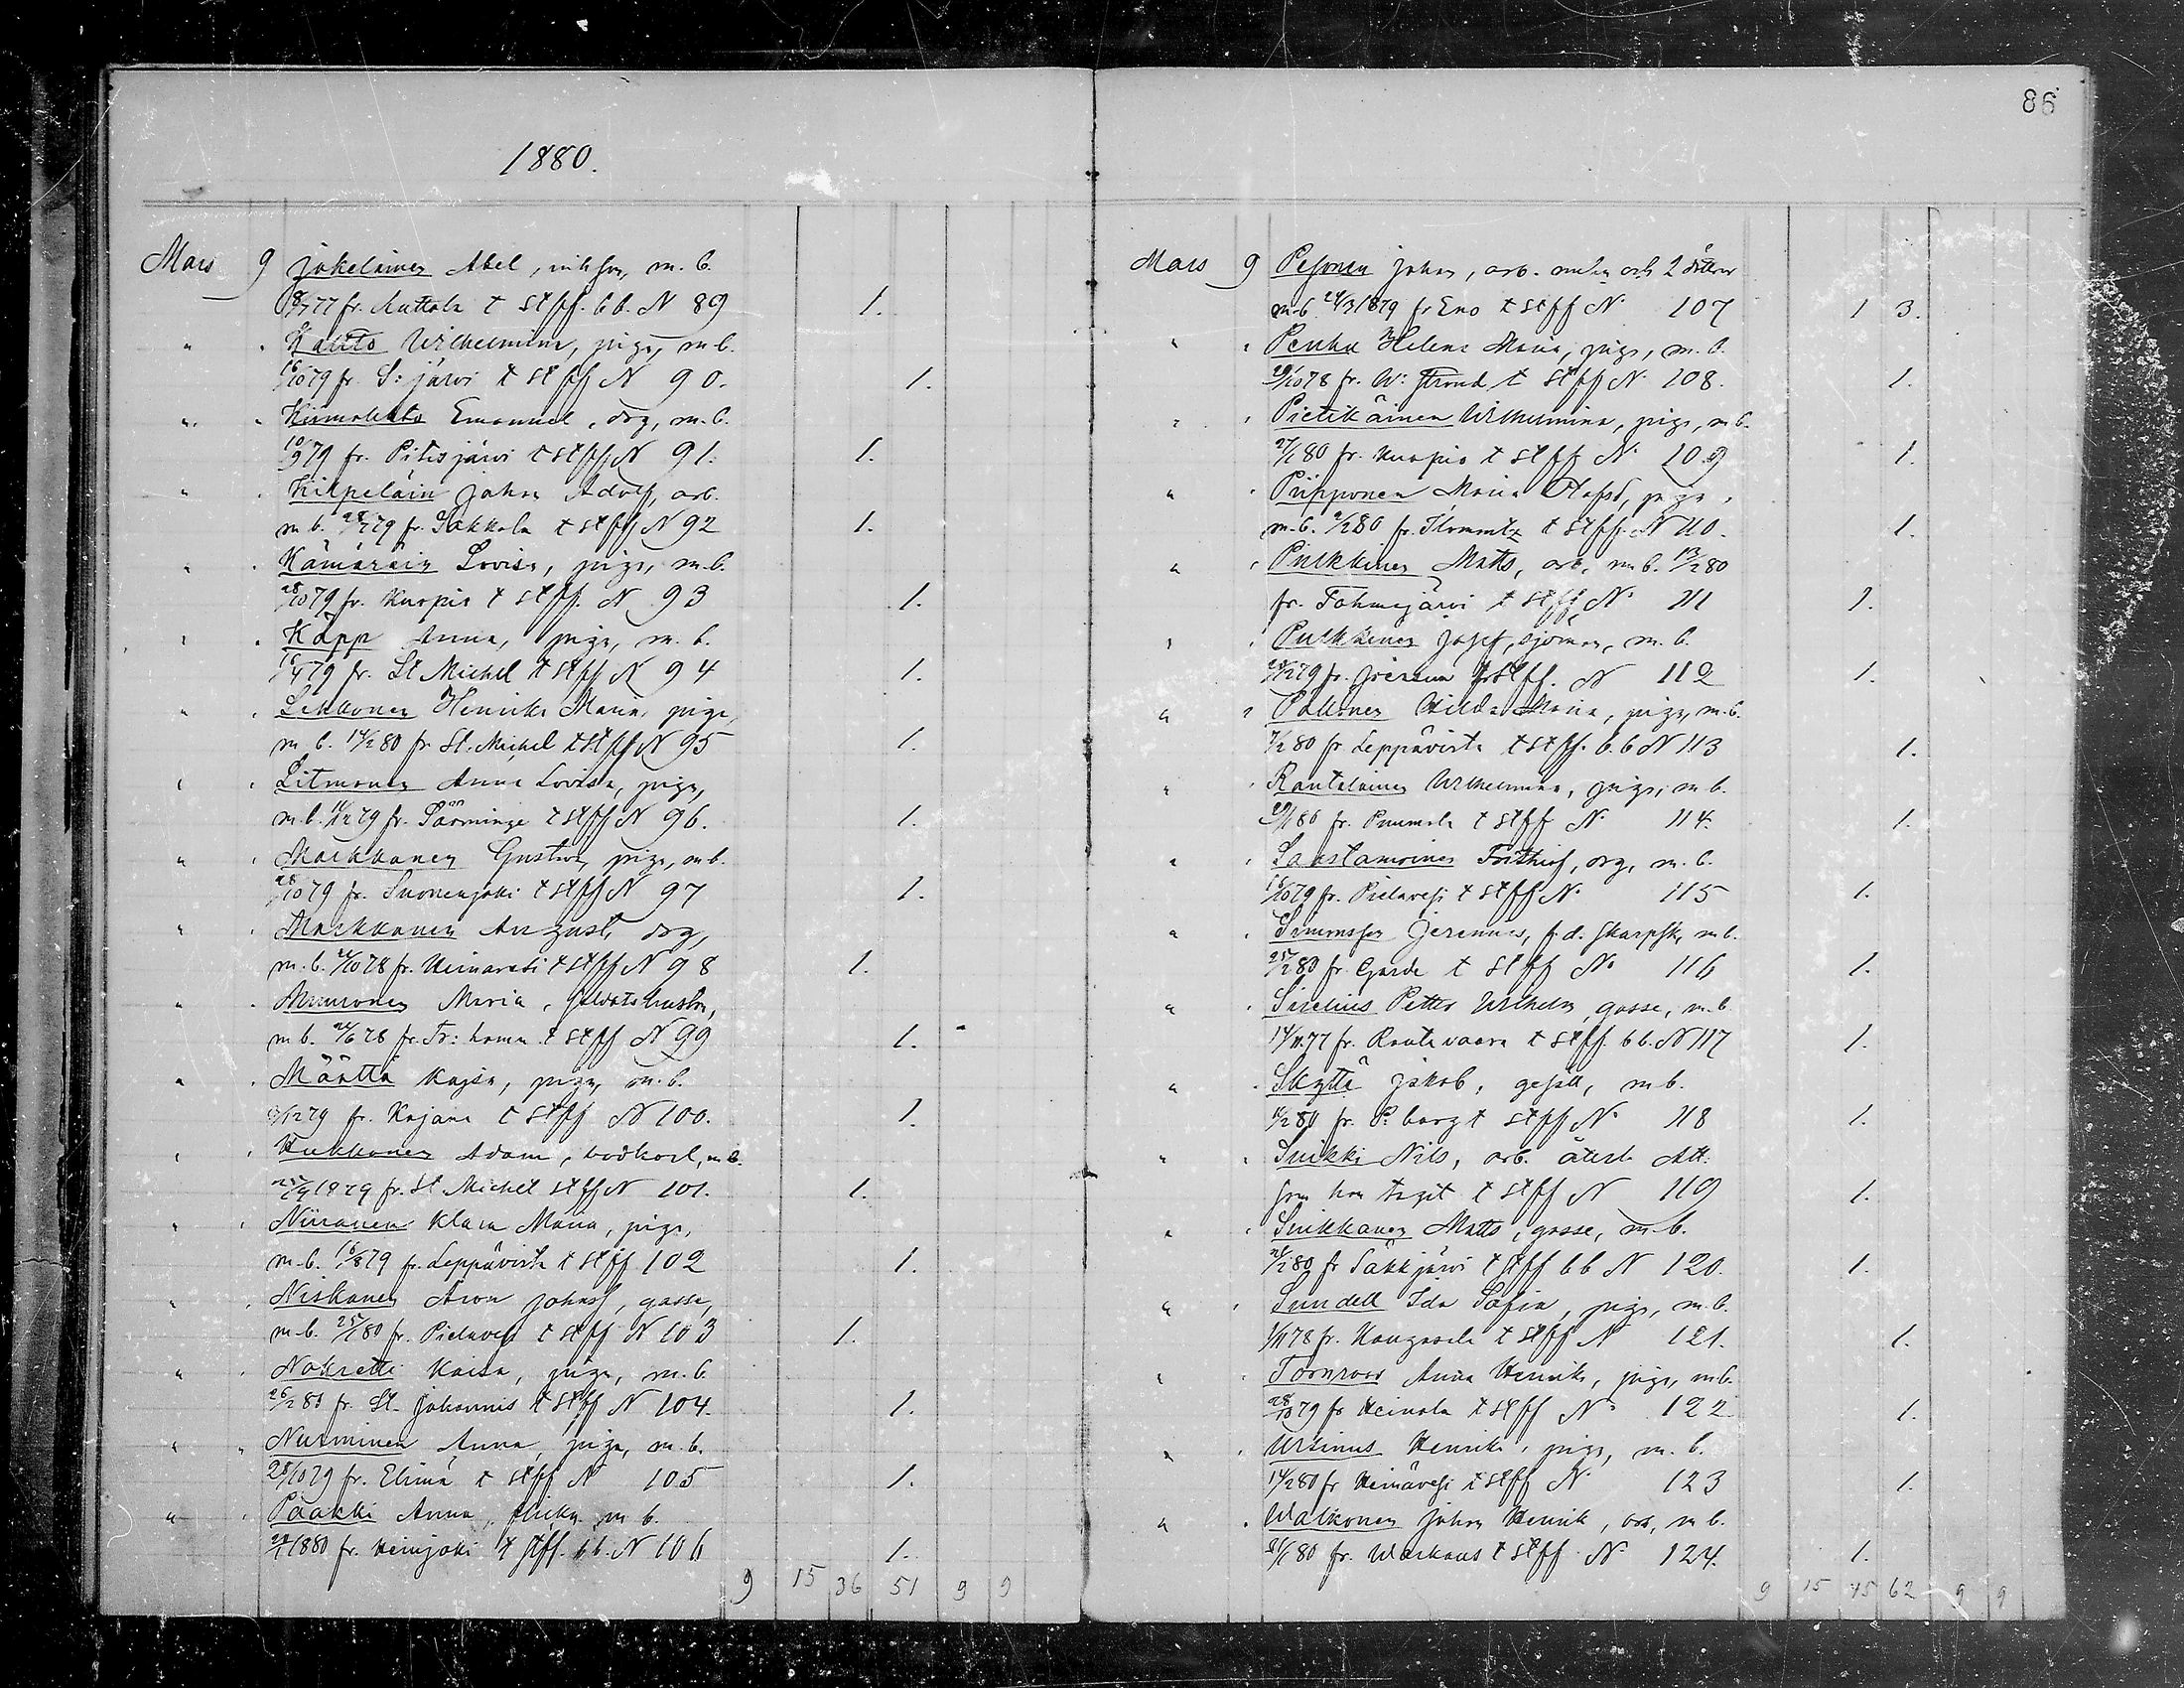 86
1880.
Mars 9 Jokelainen Abel, m. b.
8/7 77 fr. Kuttola t stff. b b. N 89 1.
" " Kautto Wilhelmina, piga, m. b.
16/10 79 fr. S:järvi t stff N 90. 1.
" " Emanuel, drg, m. b.
10/9 79 fr. Pitisjärvi t stff N 91. 1.
" " Kilpeläin Johan Adolf, arb.
m. b. 28/7 79 fr. Sakkola t stff N 92 1.
" " Kämäräin Lovisa, piga, m. b.
28/10 79 fr. Kuopio t stff. N 93 1.
" " Käpp Anna, piga, m. b.
16/4 79 fr. St Michel t stff N 94 1.
" " Lekkonen Henrika Maria, piga,
m. b. 14/2 80 fr. St. Michel t stff N 95 1.
" " Litmonen Anna Lovisa, piga,
m. b. 79 fr. Säminge t stff N 96. 1.
" " Markkanen Gustava, piga, m b.
28/10 79 fr. Suonenjoki t stff N 97 1.
" " Markkanen August, drg,
m. b. 10 78 fr. Heinävesi t stff N 98 1.
" " Muuronen Maria, soldatshustru,
m b. 6 78 fr. Fr: hamn t stff N 99 1.
" " Määttä Kajsa, piga, m. b.
12 79 fr. Kajana t stff N 100. 1.
" " Adam, vodkarl, m b.
9 1879 fr. St Michel stff N 101. 1.
" " Niiranen Klara Maria, piga,
m. b. 16/8 79 fr. Leppävirta t stff 102 1.
" " Niskanen Aron Johnsf, gosse,
m. b. 25/1 80 fr. Pielaves t stff N 103 1.
" " Nokretti Kaisa, piga, m. b
26/2 80 fr. St. Johannis t stff N 104. 1.
" " Nurminen Anna, piga, m. b.
28/10 79 fr. Elimä t stff N 105 1.
" " Paakki Anna, flicka m b.
1880 fr. Heinjoki t stff. b b. N 106 1.
9 15 36 51 9 9
Mars 9 Pesonen Johan, arb. och 2 döttrar
m. b. 24/3 1879 fr Eno t stff N. 107 1 3.
" " Penha Helena Maria, piga, m. b.
29/10 78 fr. W: Strand t stff N. 108. 1.
" " Pietikäinen Wilhelmina, piga, m b.
27/1 80 fr. Kuopio t stff N. 109 1.
" " Piipponen Maria Olofsd, piga,
m. b. 2/2 80 fr. Ilomants t stff. N 110. 1.
" " Pulkkinen Matts, arb, m b. 13/2 80
fr. Tohmajärvi t stff N. 111 1.
" " Pulkkinen Josef, sjöman, m. b.
79 fr. Jääska stff. N 112 1.
" " Pällinen Hilda Maria, piga, m. b.
7/2 80 fr. Leppävirta t stff. b. b N 113 1.
" " Rantalainen Wilhelmina, piga, m b.
29/1 80 fr. Pumala t stff N. 114. 1.
" " Saastamoinen Frithiof, drg, m. b.
16/10 79 fr. Pielavesi t stff N. 115 1.
" " Simonsson Jeremias, f. d. skarpsk, m b.
25/2 80 fr. Garde t stff No 116 1.
" " Sirelius Petter Wilhelm, gosse, m. b.
14/11 77 fr. Rautavaara t stff. b b. N 117 1.
" " Skyttä Jakob, gesäll, m b.
2 80 fr. P:borg t stff N. 118 1.
" " Suikki Nils, arb. återl. Att.
som han tagit t stff N 119 1.
" " Suikkanen Matts, gosse, m. b.
2 80 fr Säkkjärvi t stff b b N 120. 1.
" " Sundell Ida Sofia, piga, m. b.
1/11 78 fr. Kangasala t stff N 121. 1.
" " Törnroos Anna Henrika, piga, m b.
28/10 79 fr Heinola t stff N. 122 1.
" " Ursinus Henrika, piga, m. b.
14/2 80 fr Heinävesi t stff N. 123 1.
" " Walkonen Johan Henrik, arb, m b.
80 fr. Warkaus t stff N. 124. 1.
9 15 45 62 9 9